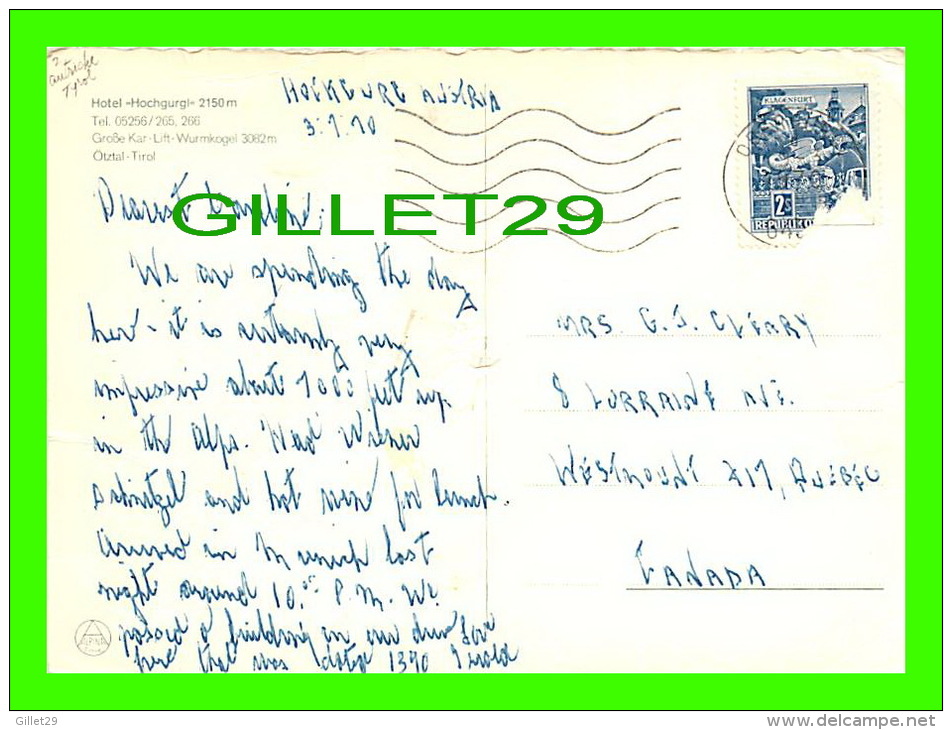 ?
autriche
Tyrol
Hotel »Hochgurgl« 2150 m
Tel. 05256/265, 266
Große Kar-Lift-Wurmkogel 3082 m
Ötztal-Tirol
AUSTRIA
3.1.70
KLAGENFURT
2s
REPUBLIK Ö
Dearest
GILLET29
We are spending the day
here - it is certainly very
impressive about 7000 feet up
in the Alps. Had Wiener
schnitzel and hot wine for lunch.
Arrived in Munich last
night around 10.05 P.M. We
passed a building on our drive Love
here that was dated 1390 Gerald
MRS. G. J. CLEARY
8 LORRAINE AVE.
WESTMOUNT 217, QUEBEC
CANADA
Gillet29
http://www.delcampe.net